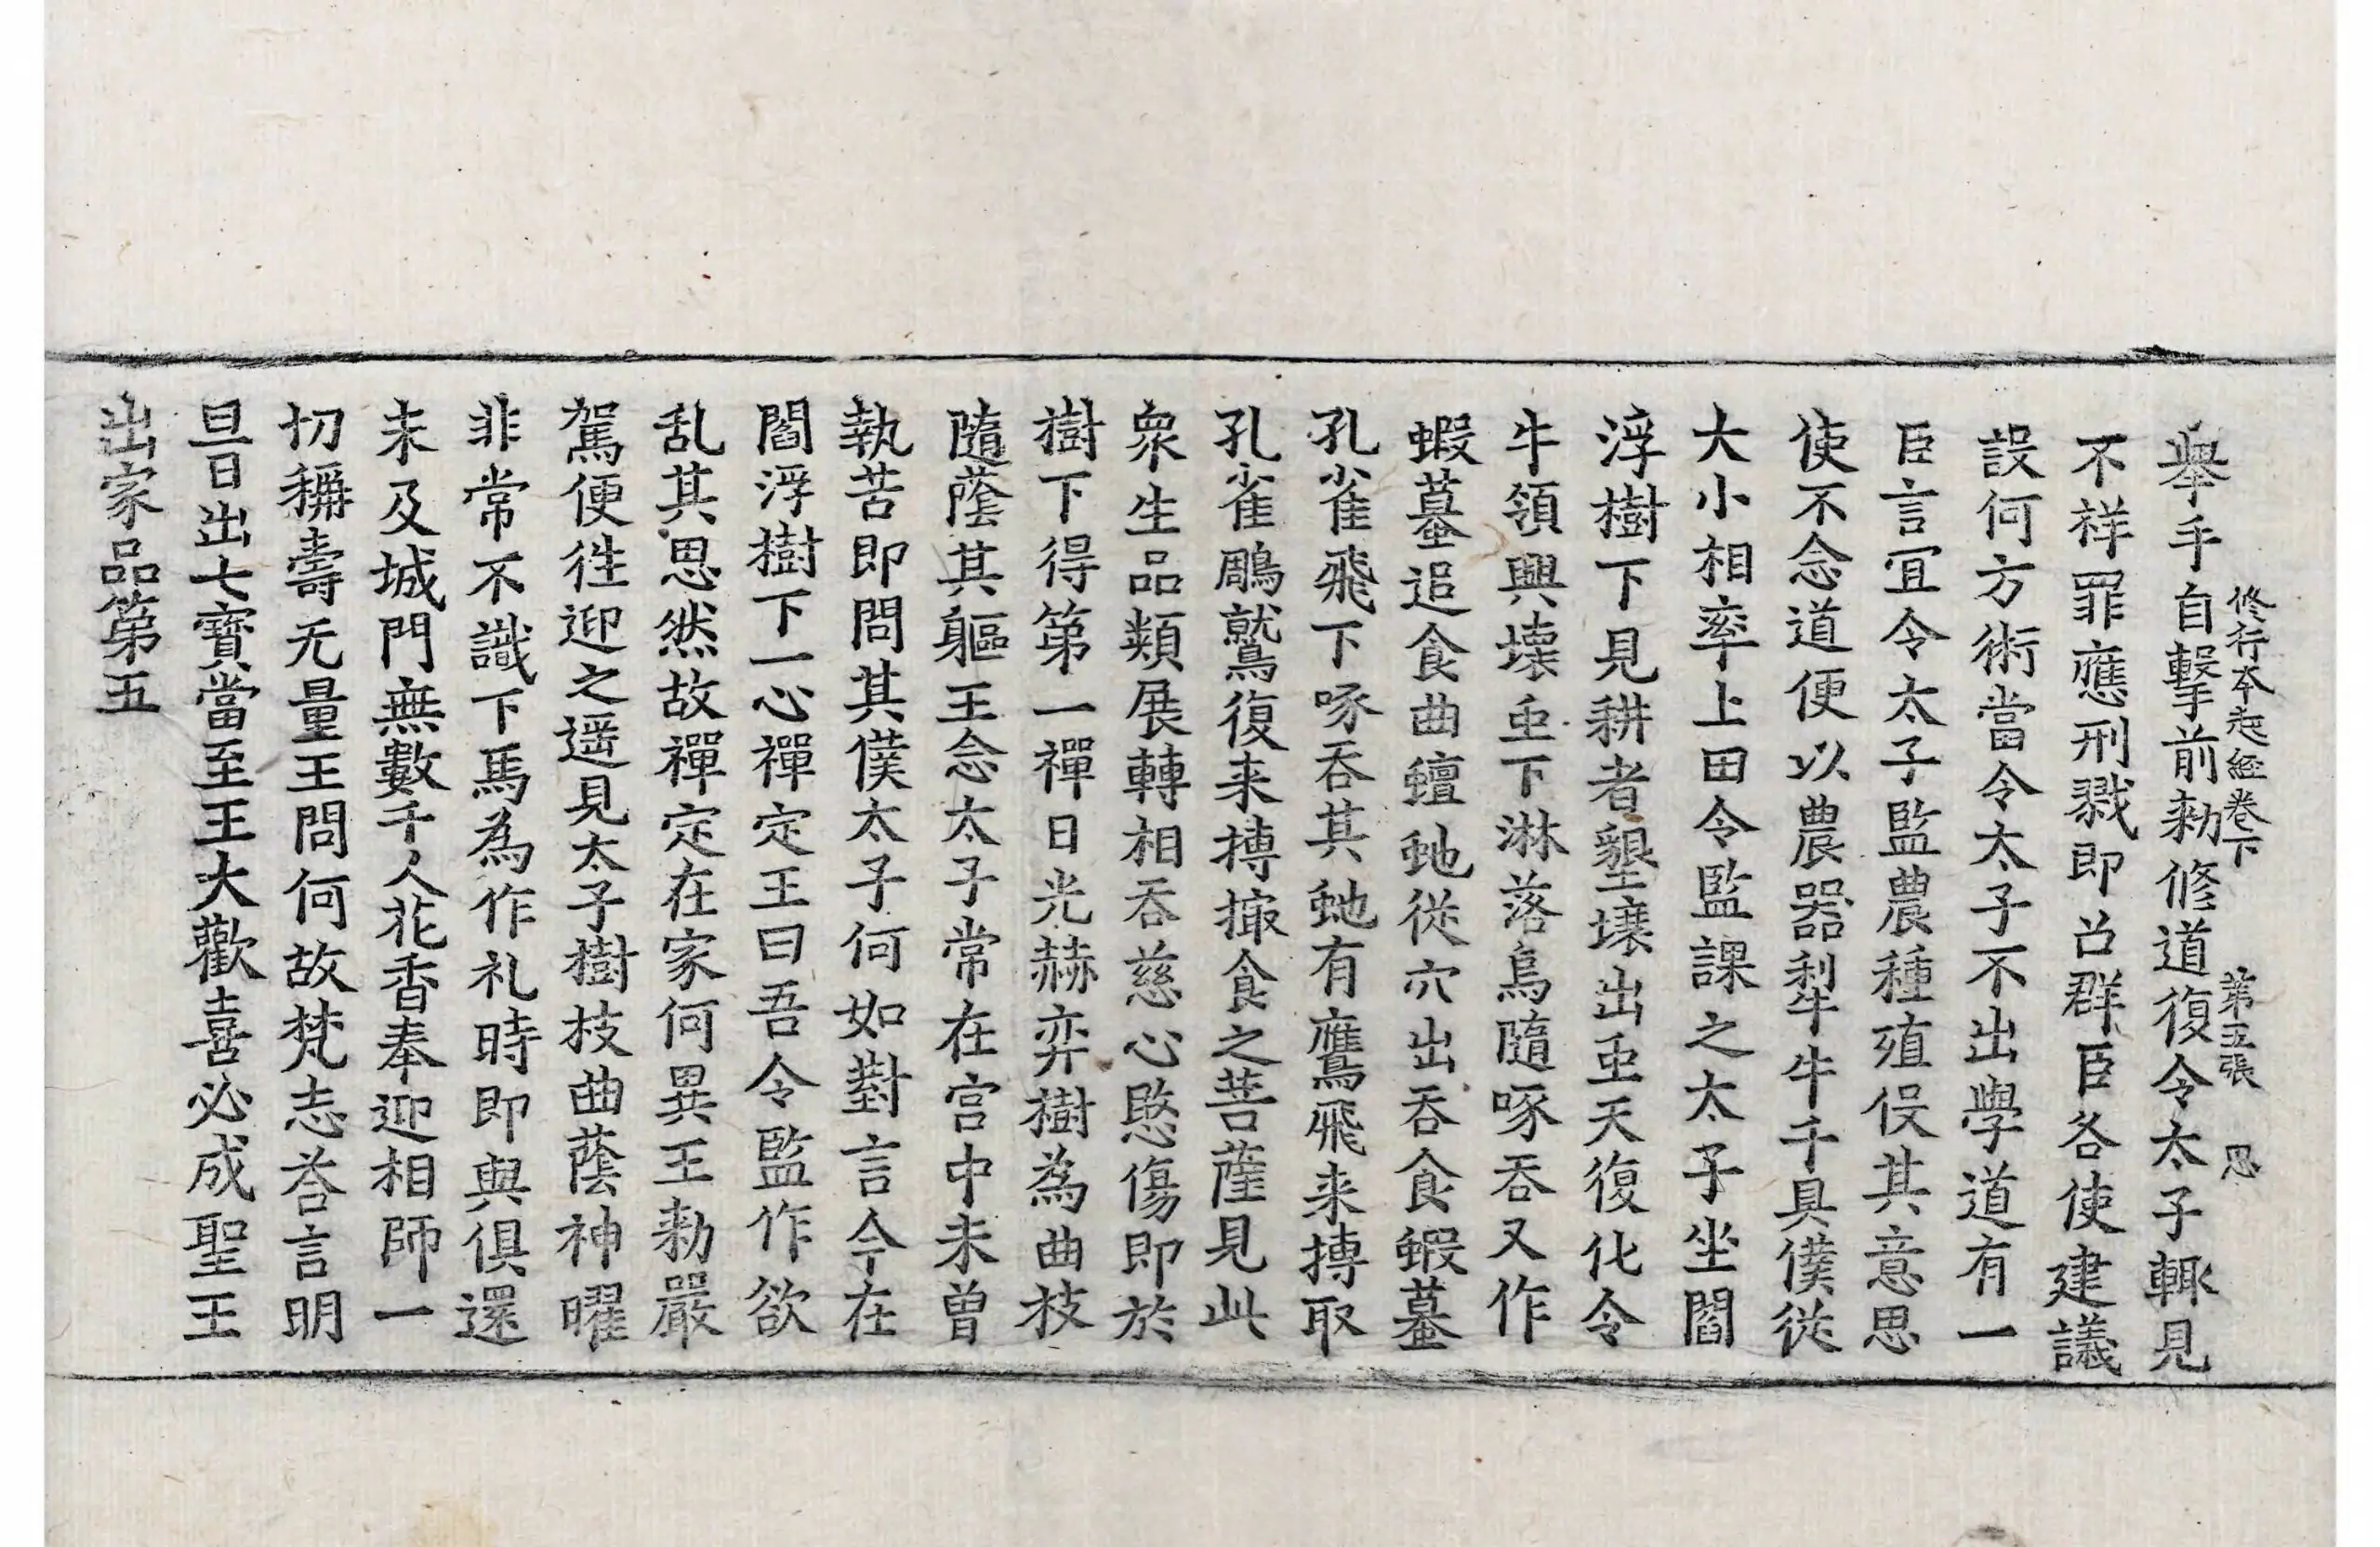 修行本起経卷下 第五張 思
舉手自擊前勑修道復令太子輙見
不祥罪應刑戮即召群臣各使建議
設何方術當令太子不出學道有一
臣言宜令太子監農種殖役其意思
使不念道便以農器犁牛千具僕從
大小相率上田令監課之太子坐閻
浮樹下見耕者墾壤出䖝天復化令
牛領興壊䖝下淋落烏隨啄吞又作
蝦蟇追食曲蟺虵從穴出吞食蝦蟇
孔雀飛下啄吞其虵有鷹飛来搏取
孔雀鵰鷲復来搏撮食之菩薩見此
衆生品類展轉相吞慈心愍傷即於
樹下得第一禪日光赫弈樹為曲枝
隨蔭其軀王念太子常在宫中未曾
執苦即問其僕太子何如對言今在
閻浮樹下一心禪定王曰吾令監作欲
乱其思然故禪定在家何異王勑嚴
駕便徃迎之遥見太子樹枝曲蔭神曜
非常不識下馬為作礼時即與俱還
未及城門無數千人花香奉迎相師一
切稱壽无量王問何故梵志荅言明
旦日出七寳當至王大歡喜必成聖王
出家品第五